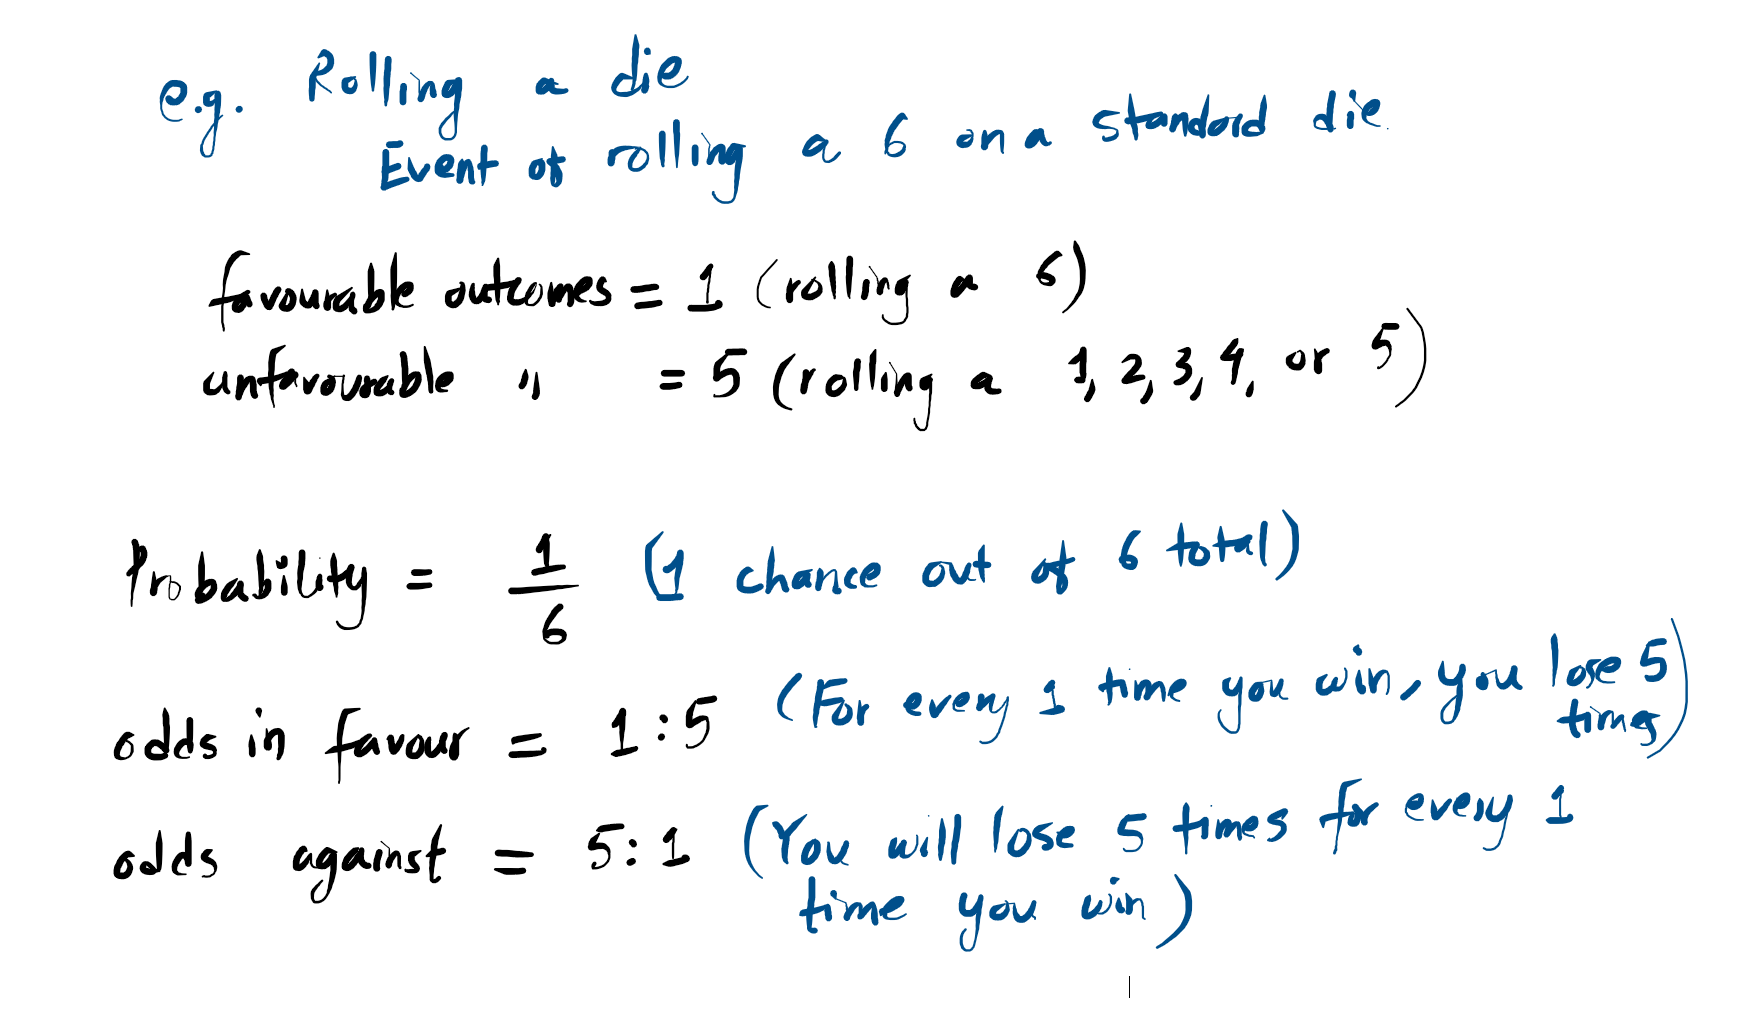 e.g. Rolling a die
Event of rolling a 6 on a standard die.
favourable outcomes = 1 (rolling a 6)
unfavourable " = 5 (rolling a 1, 2, 3, 4, or 5)
Probability = 1/6 (1 chance out of 6 total)
odds in favour = 1:5 (For every 1 time you win, you lose 5
times)
odds against = 5:1 (You will lose 5 times for every 1
time you win)